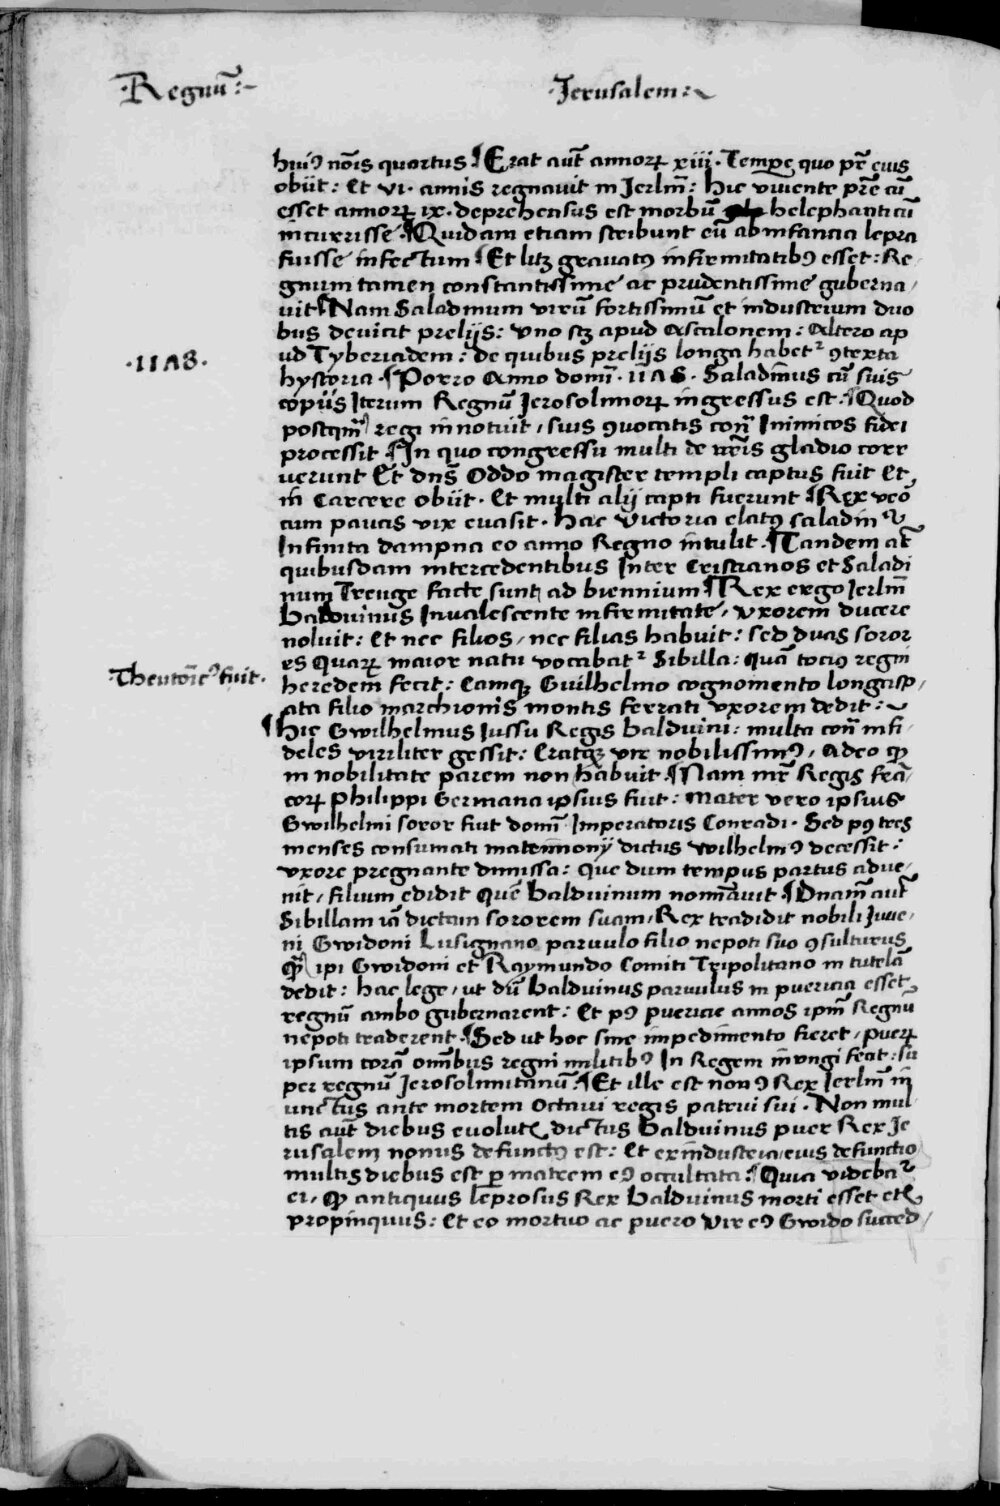 ·Regnū:~
·Jerusalem:~
hui9 nōis quartus ¶ Erat aūt annoꝝ xiii. Tempe quo pr̄ eius
obiit: Et vi. annis regnavit in Jerlm̄: hic vivente pr̄e cū
esset annoꝝ ix. deprehensus est morbū helephanticū
incurrisse ¶ Quidam etiam scribunt eū ab infancia lepra
fuisse infectum ¶ Et litꝫ gravat9 infirmitatib9 esset: Re
gnum tamen constantissime ac prudentissime guberna/
vit ¶ Nam Saladinum virū fortissimū et industrium duo
bus devicit prelijs: vno scꝫ apud Ascalonem: Altero ap
ud Tyberiadem: de quibus prelijs longa habetr 9texta
·11Λ8·
hystoria ¶ Porro Anno domī · 11Λ8 · Saladinus cū suis
copiis Iterum Regnū Jerosolimoꝝ ingressus est: ¶ Quod
postqm̄ regi innotuit, suis 9uocatis cont̄ Inimicos fidei
processit ¶ In quo congressu multi de nr̄is gladio corr
uerunt Et dn̄s Oddo magister templi captus fuit Et
in Carcere obiit · Et multi alij capti fuerunt ¶ Rex vēo
cum paucis vix evasit · Hac Victoria elat9 saladin9
Infinita dampna eo anno Regno intulit ¶ Tandem at̄
quibusdam intercedentibus Inter Cristianos et Saladi
num Treuge facte sunt ad biennium ¶ Rex ergo Jerlm̄
Balduinus Invalescente infirmitate, vxorem ducere
noluit: Et nec filios, nec filias habuit: sed duas soror
es Quaꝝ maior natu vocabatr Sibilla: Quā toci9 regni
·Theutōic9 fuit·
heredem fecit: Eamqꝫ Guilhelmo cognomento longasp/
ata filio marchionis montis ferrati vxorem dedit:~
¶ Hic Gwilhelmus Iussu Regis balduini: multa cont̄ infi/
deles viriliter gessit: Eratqꝫ vir nobilissim9, Adeo qꝫ
in nobilitate parem non habuit ¶ Nam mr̄ Regis frā/
coꝝ Philippi Germana ipsius fuit: Mater vero ipsius
Gwilhelmi soror fuit domī Imperatoris Conradi · Sed p9 tres
menses consumati matrimonij dictus Wilhelm9 decessit:
vxore pregnante dimissa: Que dum tempus partus adue/
nit, filium edidit Quē balduinum nominavit ¶ Dnām aūt
Sibillam iā dictam sororem suam, Rex tradidit nobili Juue/
ni Gwidoni Lusignano paruulo filio nepoti suo 9sulturus
Qm̄ ipi Gwidoni et Raymundo Comiti Tripolitano in tutelā
dedit: hac lege, ut dū balduinus paruulus in puericia esset
regnū ambo gubernarent: Et p9 puericie annos ipm̄ Regnū
nepoti traderent ¶ Sed ut hoc sine impedimento fieret, pueꝝ
ipsum corā omībus regni militib9 In Regem inungi fecit: su
per regnū Jerosolimitanū ¶ Et ille est non9 Rex Jerlm̄ in
unctus ante mortem Octavi regis patrui sui · Non mul
tis aūt diebus evolutis dictus balduinus puer Rex Je
rusalem nonus defunct9 est: Et ex industria eius defunctio
multis diebus est p matrem e9 occultata: ¶ Quia videbar
ei, qꝫ antiquus leprosus Rex balduinus morti esset etꝫ
propinquus: Et eo mortuo ac puero vir e9 Gwido succed/